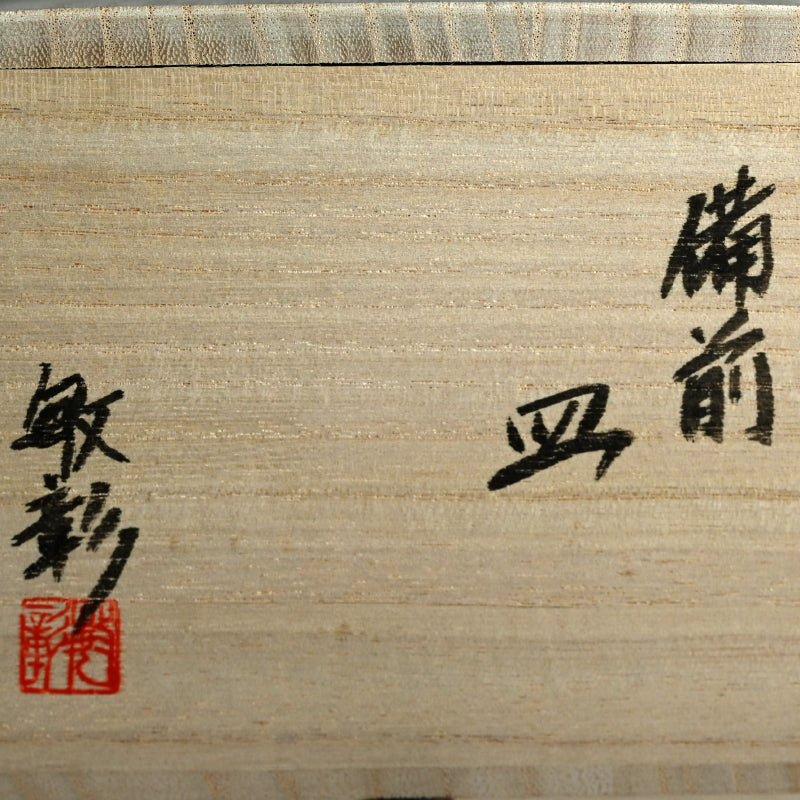 備前
皿
敏彰